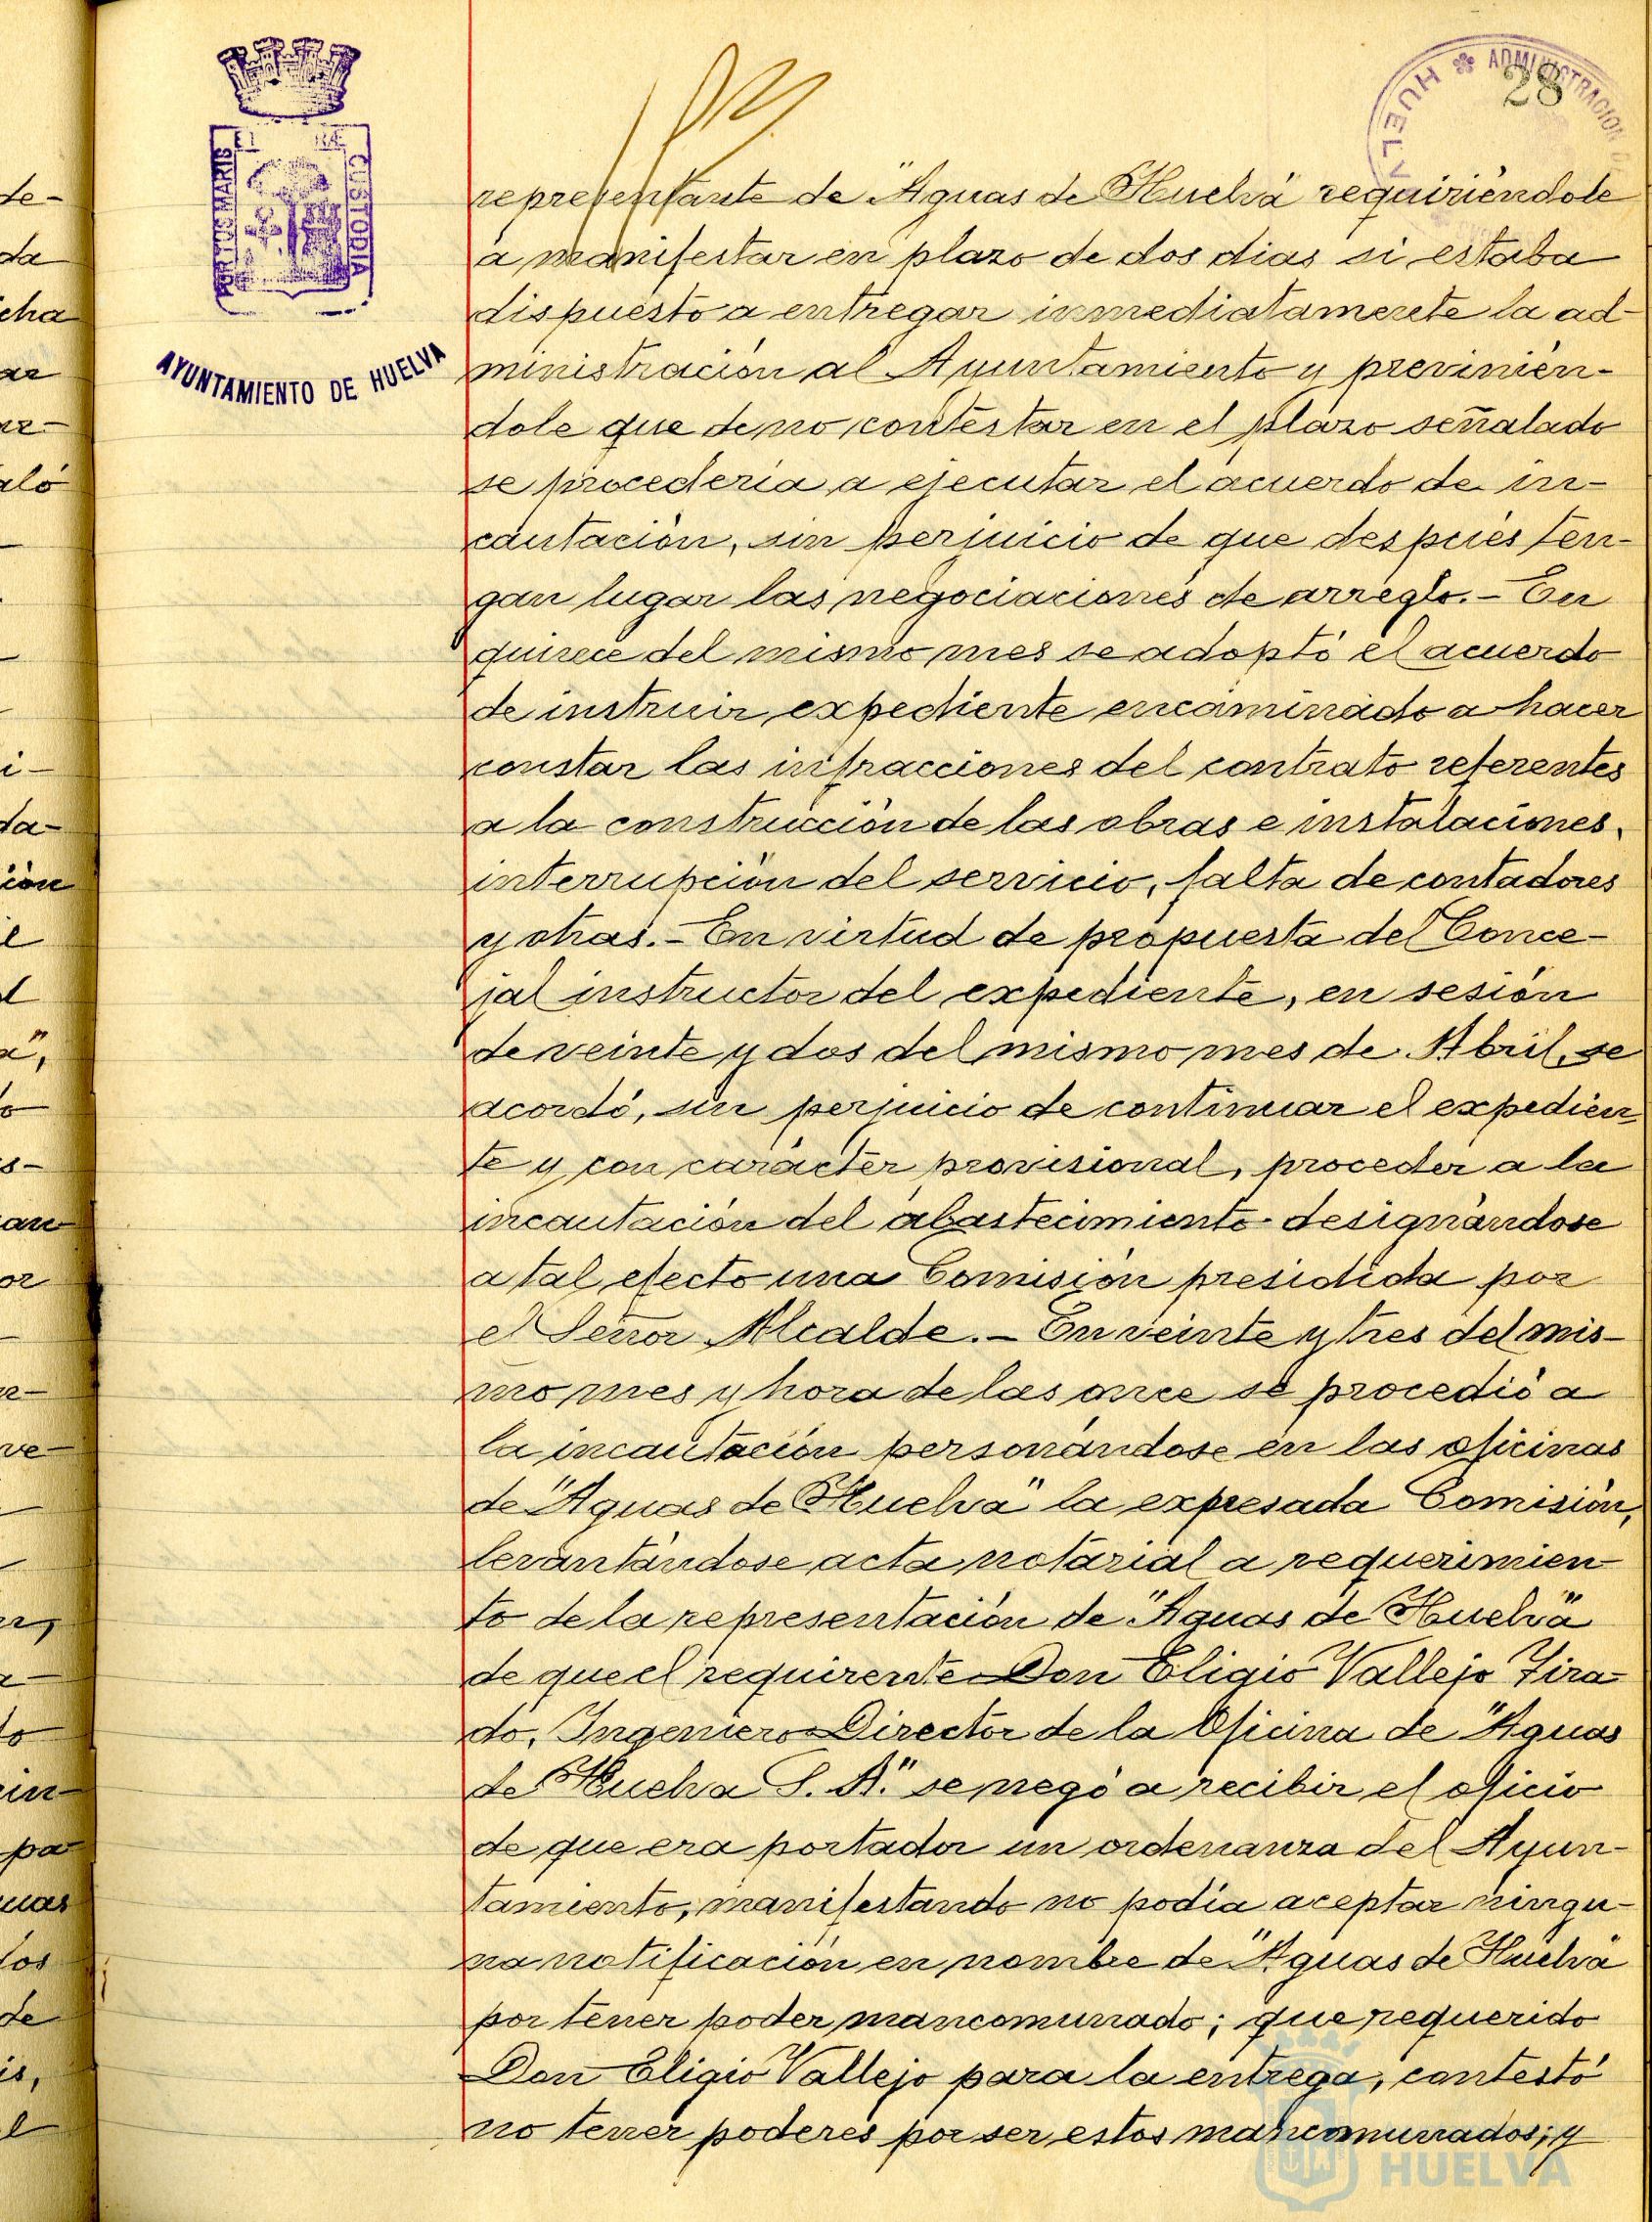 28
HUELVA ADMINISTRACION
PORTUS MARIS ET TERRÆ CUSTODIA
AYUNTAMIENTO DE HUELVA
representante de "Aguas de Huelva" requiriéndole
a manifestar en plazo de dos dias si estaba
dispuesto a entregar inmediatamente la ad-
ministración al Ayuntamiento y previnién-
dole que de no contestar en el plazo señalado
se procedería a ejecutar el acuerdo de in-
cautación, sin perjuicio de que después ten-
gan lugar las negociaciones de arreglo.- En
quince del mismo mes se adoptó el acuerdo
de instruir expediente encaminado a hacer
constar las infracciones del contrato referentes
a la construcción de las obras e instalaciones,
interrupción del servicio, falta de contadores
y otras.- En virtud de propuesta del Conce-
jal instructor del expediente, en sesión
de veinte y dos del mismo mes de Abril, se
acordó, sin perjuicio de continuar el expedien-
te y con carácter provisional, proceder a la
incautación del abastecimiento designándose
a tal efecto una Comisión presidida por
el Señor Alcalde.- En veinte y tres del mis-
mo mes y hora de las once se procedió a
la incautación personándose en las oficinas
de "Aguas de Huelva" la expresada Comisión,
levantándose acta notarial a requerimien-
to de la representación de "Aguas de Huelva"
de que el requirente Don Eligio Vallejo Tira-
do, Ingeniero Director de la Oficina de "Aguas
de Huelva S. A." se negó a recibir el oficio
de que era portador un ordenanza del Ayun-
tamiento, manifestando no podía aceptar ningu-
na notificación en nombre de "Aguas de Huelva"
por tener poder mancomunado; que requerido
Don Eligio Vallejo para la entrega, contestó
no tener poderes por ser estos mancomunados; y
HUELVA